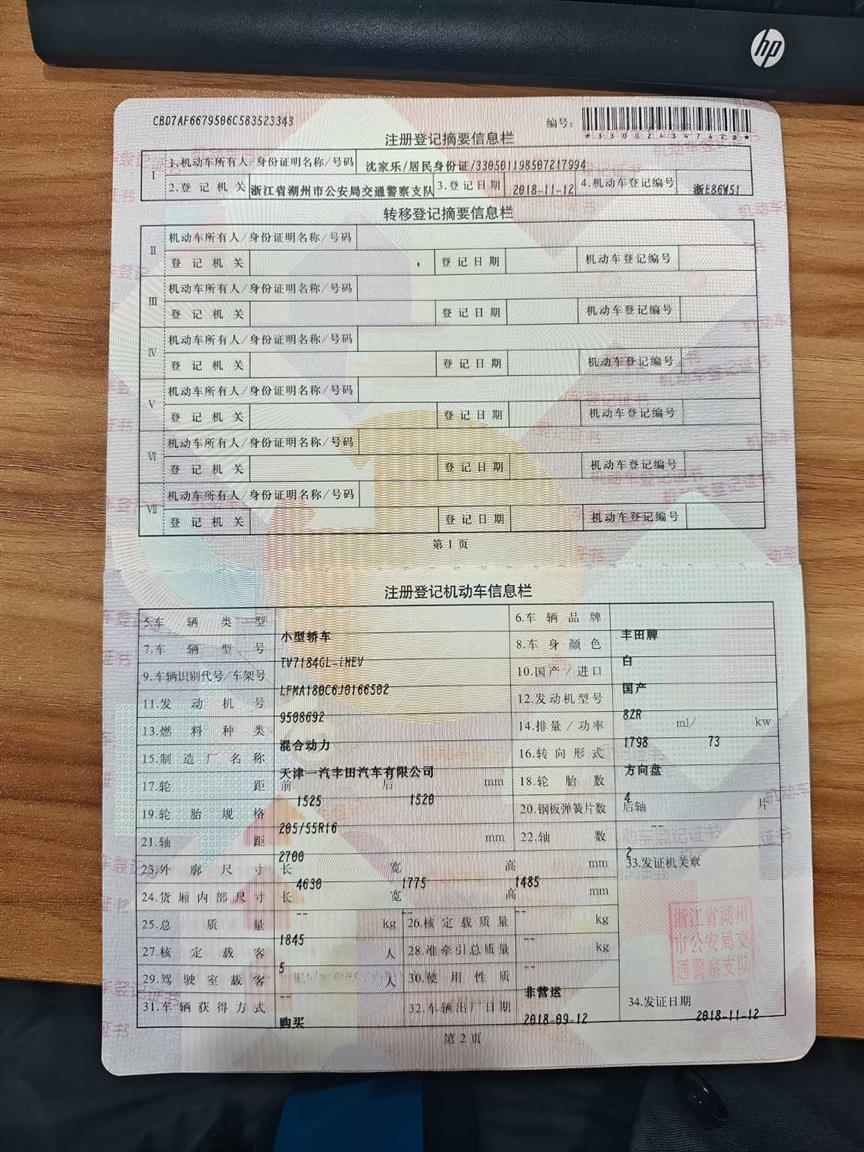 hp
CBD7AF6679506C583523343 编号：
*330024347428*
注册登记摘要信息栏
I 1.机动车所有人/身份证明名称/号码 沈家乐/居民身份证/330501198507217994
2.登记机关 浙江省湖州市公安局交通警察支队 3.登记日期 2018-11-12 4.机动车登记编号 浙E86W51
转移登记摘要信息栏
II 机动车所有人/身份证明名称/号码
登记机关 登记日期 机动车登记编号
III 机动车所有人/身份证明名称/号码
登记机关 登记日期 机动车登记编号
IV 机动车所有人/身份证明名称/号码
登记机关 登记日期 机动车登记编号
V 机动车所有人/身份证明名称/号码
登记机关 登记日期 机动车登记编号
VI 机动车所有人/身份证明名称/号码
登记机关 登记日期 机动车登记编号
VII 机动车所有人/身份证明名称/号码
登记机关 登记日期 机动车登记编号
第1页
注册登记机动车信息栏
5.车辆类型 小型轿车 6.车辆品牌 丰田牌
7.车辆型号 TV7184GL-iHEV 8.车身颜色 白
9.车辆识别代号/车架号 LFMA180C6J0166502 10.国产/进口 国产
11.发动机号 9508692 12.发动机型号 8ZR
13.燃料种类 混合动力 14.排量/功率 1798 ml/ 73 kw
15.制造厂名称 天津一汽丰田汽车有限公司 16.转向形式 方向盘
17.轮距 前 1525 后 1520 mm 18.轮胎数 4
19.轮胎规格 205/55R16 20.钢板弹簧片数 后轴 -- 片
21.轴距 2700 mm 22.轴数 2
23.外廓尺寸 长 4630 宽 1775 高 1485 mm 33.发证机关章
24.货厢内部尺寸 长 -- 宽 -- 高 -- mm
25.总质量 1845 kg 26.核定载质量 -- kg
27.核定载客 5 人 28.准牵引总质量 -- kg
29.驾驶室载客 -- 人 30.使用性质 非营运
31.车辆获得方式 购买 32.车辆出厂日期 2018-09-12 34.发证日期 2018-11-12
浙江省湖州
市公安局交
通警察支队
第2页